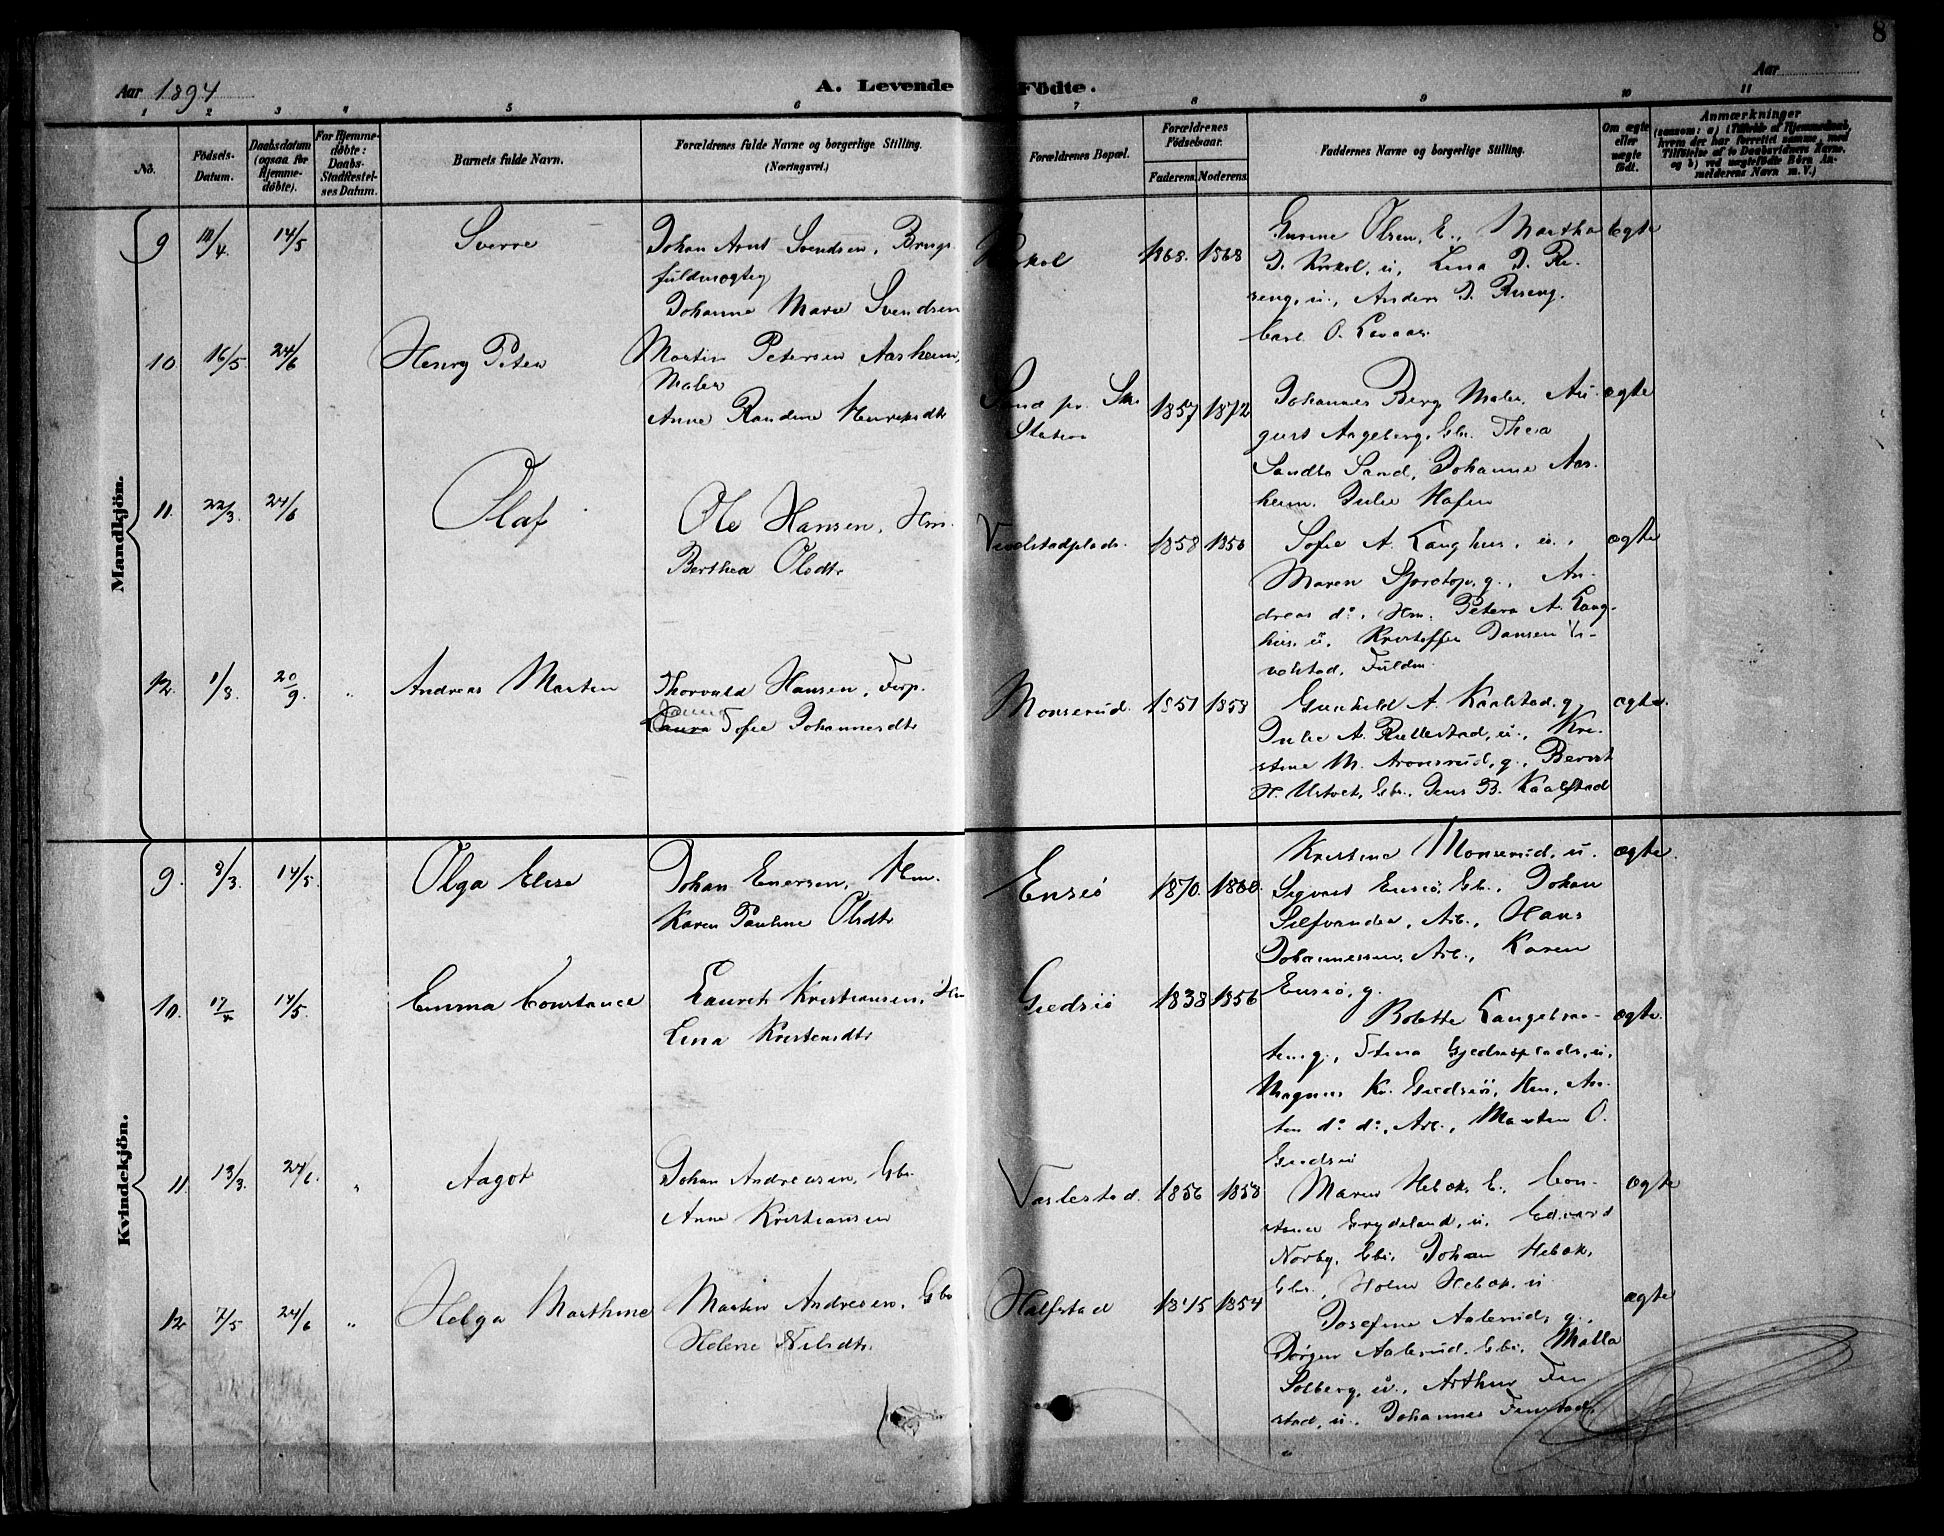 8
Aar 1894
A. Levende Födte.
Aar
1 2 3 4 5 6 7 8 9 10 11
No.
Födsels-Datum.
Daabsdatum (ogsaa for Hjemme-döbte).
For Hjemme-döbte: Daabs-Stadfæstel-ses Datum.
Barnets fulde Navn.
Forældrenes fulde Navne og borgerlige Stilling. (Næringsvei.)
Forældrenes Bopæl.
Forældrenes Födselsaar.
Faderens. Moderens.
Faddernes Navne og borgerlige Stilling.
Om ægte eller uægte födt.
Anmærkninger
Mandkjön.
9 14/4. 14/5 Sverre
Johan Arnt Svendsen, Brugs
fuldmægtig
Johanne Marie Svendsen
1868. 1868
Olsen, E., Martha
D. Krokol, u, Lina D. Ri-
seng, u., Anders D. Riseng.
Carl O.
ægte
10 16/5 24/6 Henry Peter
Martin Petersen Aasheim,
Maler
Anne Randine Henriksdtr
Station
1857 1872
Johannes Berg Maler, Au-
gust Angeberg, Gbr. Thea
Sandbo Sand, Johanne Aas-
heim, Julie
ægte
11. 22/3. 24/6 Olaf
Ole Hansen, Hm.
Berthea Olsdtr
1858 1850
Sofie A. Langhus, u.,
Maren g., An-
dreas do., Hm. Petera A. Lang-
hus, u, Kristoffer Jansen Ve-
velstad, Fuldm.
ægte
12. 1/8. 20/9. " Andreas Martin
Thorvald Hansen, Forp.
Sofie Johannesdtr
Monserud. 1851 1858
Gunhild A. Kaalstad, g
Julie A. Rullestad, u., Kri-
stine M. Aronsrud, g., Bernt
H. Ustvet, Gbr., Jens B. Kaalstad
ægte.
Kvindekjön.
9. 8/3. 14/5. Olga Elise
Johan Enersen, Hm.
Karen Pauline Olsdtr
Ensiö 1870. 1860.
Kristine Monserud, u.
Sigvart Ensiö, Gb., Johan
Silfvander, Arb., Hans
Johannessen, Arb., Karen
Ensiö, g.
ægte.
10. 17/4 14/5. Emma Constance
Laurits Kristiansen, Hm
Lina Kristensdtr
Giedsiö 1838 1856
Bolette Langebaa-
ten g., Stina Gjedsiöplads, u,
Magnus Kr. Giedsiö, Hm, An-
ton do. do., Arb., Martin O.
Giedsiö
ægte.
11. 13/3. 24/6. " Aagot
Johan Andreasen, Gbr.
Anne Kristiansen
Vaslestad. 1856 1858
Maren Hebæk, E., Con-
stance Grydeland, u. Edvard
Norby, Gbr. Johan Hebæk,
Gbr., Holm Hebæk, u
ægte
12 7/5 24/6 " Helga Marthine
Martin Andresen, Gbr
Helene Nilsdtr.
Halfstad 1845 1854
Josefine Aalerud, g.,
Jörgen Aalerud, Gbr. Malla
Solberg, u., Arthur Fin
stad, u., Johannes Finstad,
ægte